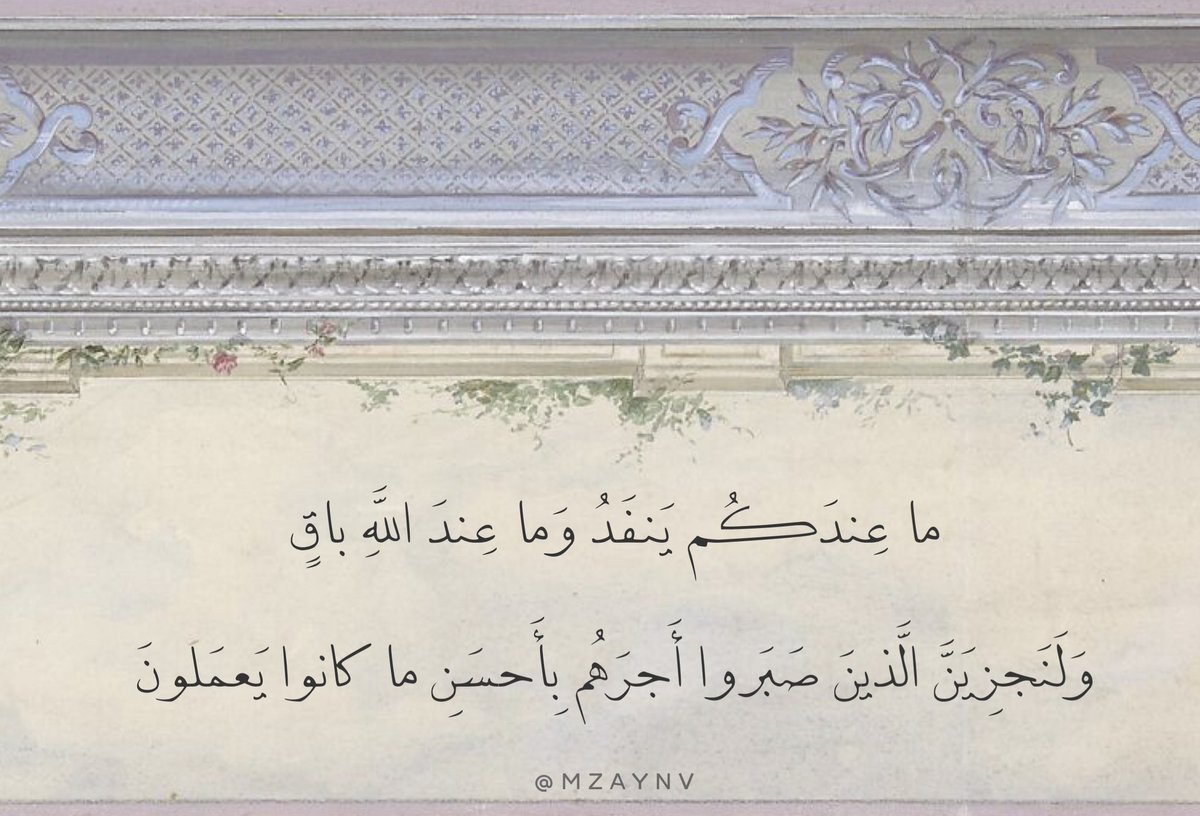 ما عِندَكُم يَنفَدُ وَما عِندَ اللَّهِ باقٍ
وَلَنَجزِيَنَّ الَّذينَ صَبَروا أَجرَهُم بِأَحسَنِ ما كانوا يَعمَلونَ
@MZAYNV